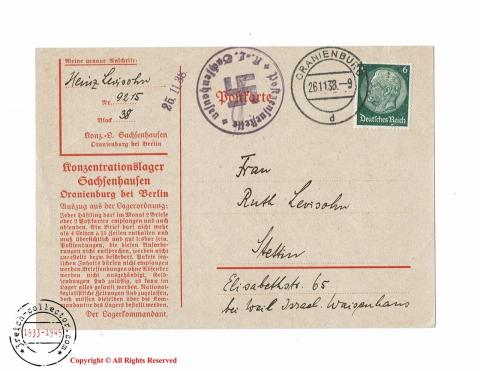 Meine genaue Anschrift:
Heinz Levisohn
Nr. 9215
Block 38
Konz.-L. Sachsenhausen
Oranienburg bei Berlin
25.11.38.
Konzentrationslager
Sachsenhausen
Oranienburg bei Berlin
Auszug aus der Lagerordnung:
Jeder Häftling darf im Monat 2 Briefe
oder 2 Postkarten empfangen und auch
absenden. Ein Brief darf nicht mehr
als 4 Seiten à 15 Zeilen enthalten und
muß übersichtlich und gut lesbar sein.
Postsendungen, die diesen Anfor-
derungen nicht entsprechen, werden nicht
zugestellt bezw. befördert. Pakete jeg-
lichen Inhalts dürfen nicht empfangen
werden. Briefsendungen ohne Absender
werden nicht ausgehändigt. Geld-
sendungen sind zulässig, es kann im
Lager alles gekauft werden. National-
sozialistische Zeitungen sind zugelassen,
doch müssen dieselben über die Kom-
mandantur des Lagers bestellt werden.
Der Lagerkommandant.
Postzensurstelle K.L. Sachsenhausen
Postkarte
ORANIENBURG
26.11.38.-9
d
6
Deutsches Reich
Frau
Ruth Levisohn
Stettin
Elisabethstr. 65
bei Weil Israel. Waisenhaus
3reich-collector.com
1933-1945
Copyright © All Rights Reserved